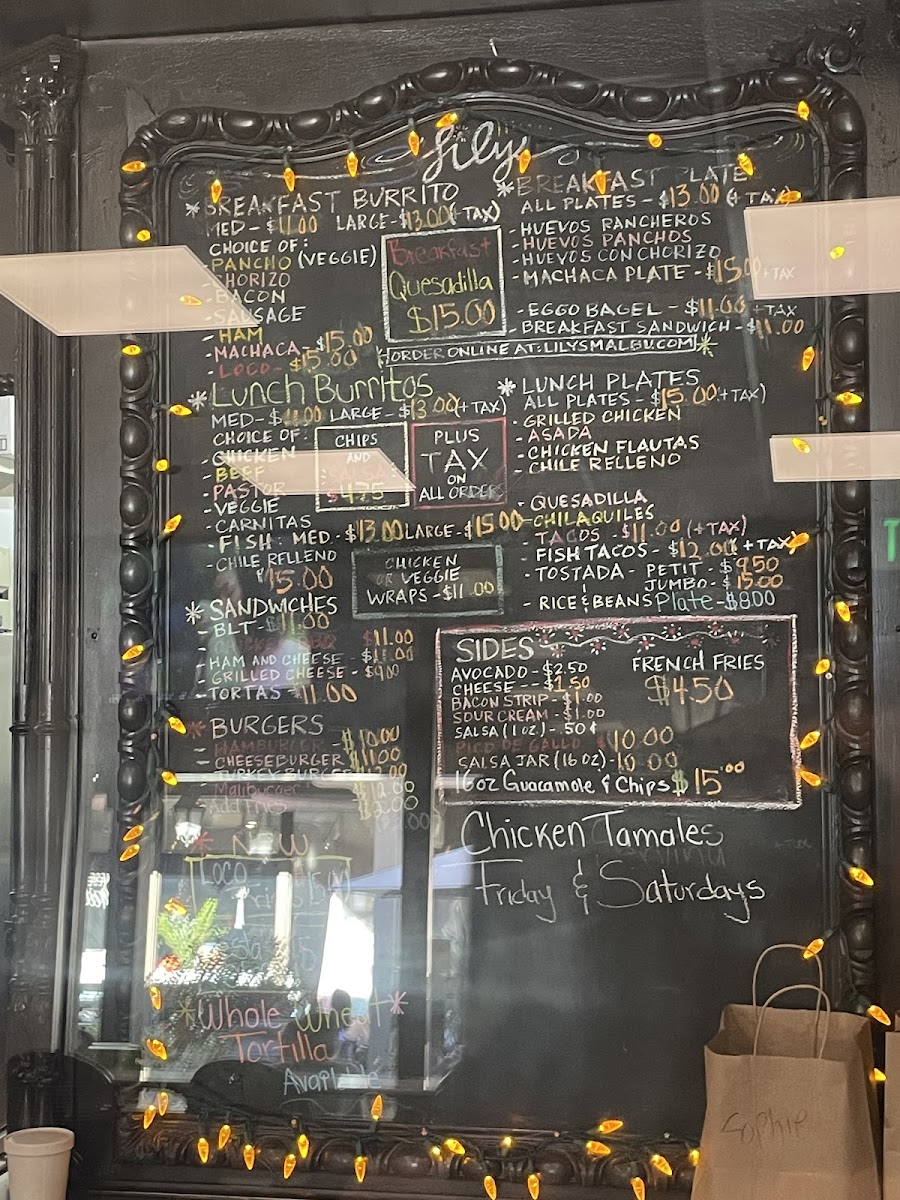 Lilys
*BREAKFAST BURRITO
MED-$11.00 LARGE-$13.00(+TAX)
CHOICE OF:
-PANCHO (VEGGIE)
-CHORIZO
-BACON
-SAUSAGE
-HAM
-MACHACA-$15.00
-LOCO-$15.00
Breakfast
Quesadilla
$15.00
*BREAKFAST PLATE
ALL PLATES-$13.00 (+TAX)
-HUEVOS RANCHEROS
-HUEVOS PANCHOS
-HUEVOS CON CHORIZO
-MACHACA PLATE-$15.00+TAX
-EGGO BAGEL-$11.00+TAX
-BREAKFAST SANDWICH-$11.00
*ORDER ONLINE AT:LILYSMALBU.COM*
*Lunch Burritos
MED-$11.00 LARGE-$13.00(+TAX)
CHOICE OF:
-CHICKEN
-BEEF
-PASTOR
-VEGGIE
-CARNITAS
-FISH: MED.-$13.00 LARGE-$15.00
-CHILE RELLENO
$15.00
CHIPS
AND
SALSA
$4.75
PLUS
TAX
ON
ALL ORDERS
*LUNCH PLATES
ALL PLATES-$15.00(+TAX)
-GRILLED CHICKEN
-ASADA
-CHICKEN FLAUTAS
-CHILE RELLENO
-QUESADILLA
-CHILAQUILES
-TACOS-$11.00 (+TAX)
-FISH TACOS-$12.00(+TAX)
-TOSTADA-PETIT-$9.50
JUMBO-$15.00
-RICE & BEANS Plate-$8.00
CHICKEN
OR VEGGIE
WRAPS-$11.00
*SANDWICHES
-BLT-$11.00
$11.00
-HAM AND CHEESE-$11.00
-GRILLED CHEESE-$9.00
-TORTAS-11.00
*BURGERS
-HAMBURGER-$10.00
-CHEESEBURGER $11.00
-TURKEY BURGER
-Maliburger $12.00
-Add Fries
SIDES
AVOCADO-$2.50
CHEESE-$1.50
BACON STRIP-$1.00
SOUR CREAM-$1.00
SALSA (1 OZ)-.50¢
PICO DE GALLO 10.00
SALSA JAR (16 OZ)-10.00
16oz Guacamole & Chips $15.00
FRENCH FRIES
$4.50
Chicken Tamales
Friday & Saturdays
*NEW
Loco
*Whole Wheat*
Tortilla
Available
Sophie